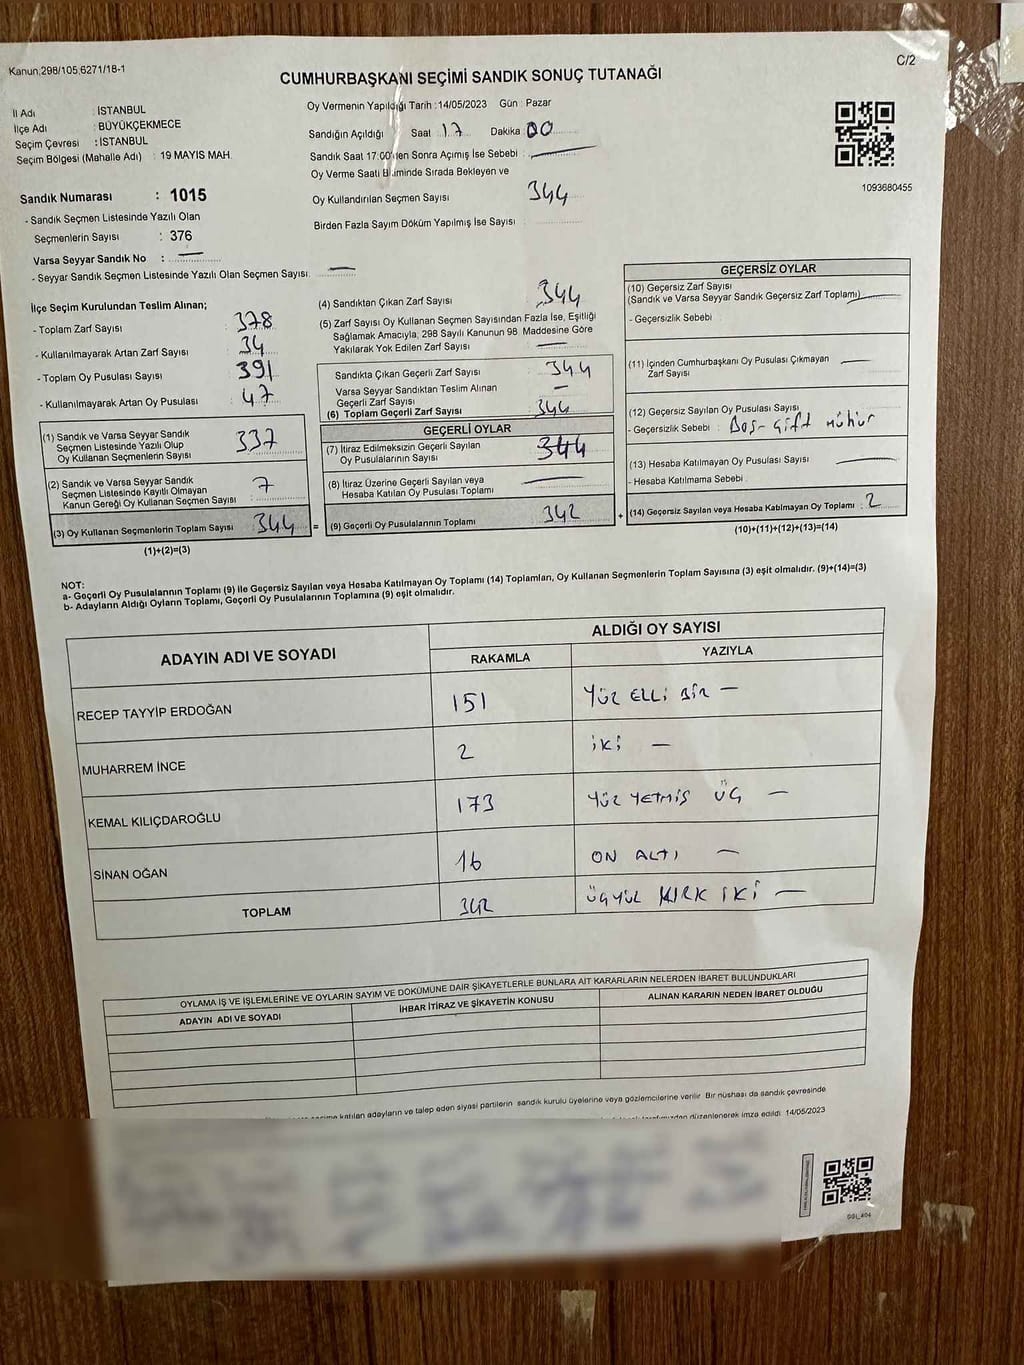 Kanun;298/105,6271/18-1
C/2
CUMHURBAŞKANI SEÇİMİ SANDIK SONUÇ TUTANAĞI
İl Adı : İSTANBUL
İlçe Adı : BÜYÜKÇEKMECE
Seçim Çevresi : İSTANBUL
Seçim Bölgesi (Mahalle Adı) : 19 MAYIS MAH.
Sandık Numarası : 1015
- Sandık Seçmen Listesinde Yazılı Olan
Seçmenlerin Sayısı : 376
Varsa Seyyar Sandık No : —
- Seyyar Sandık Seçmen Listesinde Yazılı Olan Seçmen Sayısı: —
Oy Vermenin Yapıldığı Tarih :14/05/2023 Gün : Pazar
Sandığın Açıldığı Saat 17 Dakika 00
Sandık Saat 17:00'den Sonra Açımış İse Sebebi : —
Oy Verme Saati Bitiminde Sırada Bekleyen ve
Oy Kullandırılan Seçmen Sayısı : 344
Birden Fazla Sayım Döküm Yapılmış İse Sayısı :
1093680455
İlçe Seçim Kurulundan Teslim Alınan;
- Toplam Zarf Sayısı : 378
- Kullanılmayarak Artan Zarf Sayısı : 34
- Toplam Oy Pusulası Sayısı : 391
- Kullanılmayarak Artan Oy Pusulası : 47
(1) Sandık ve Varsa Seyyar Sandık
Seçmen Listesinde Yazılı Olup
Oy Kullanan Seçmenlerin Sayısı : 337
(2) Sandık ve Varsa Seyyar Sandık
Seçmen Listesinde Kayıtlı Olmayan
Kanun Gereği Oy Kullanan Seçmen Sayısı : 7
(3) Oy Kullanan Seçmenlerin Toplam Sayısı : 344 =
(1)+(2)=(3)
(4) Sandıktan Çıkan Zarf Sayısı : 344
(5) Zarf Sayısı Oy Kullanan Seçmen Sayısından Fazla İse, Eşitliği
Sağlamak Amacıyla; 298 Sayılı Kanunun 98. Maddesine Göre
Yakılarak Yok Edilen Zarf Sayısı : —
Sandıkta Çıkan Geçerli Zarf Sayısı : 344
Varsa Seyyar Sandıktan Teslim Alınan
Geçerli Zarf Sayısı : —
(6) Toplam Geçerli Zarf Sayısı : 344
GEÇERLİ OYLAR
(7) İtiraz Edilmeksizin Geçerli Sayılan
Oy Pusulalarının Sayısı : 344
(8) İtiraz Üzerine Geçerli Sayılan veya
Hesaba Katılan Oy Pusulası Toplamı : —
(9) Geçerli Oy Pusulalarının Toplamı : 342 +
GEÇERSİZ OYLAR
(10) Geçersiz Zarf Sayısı
(Sandık ve Varsa Seyyar Sandık Geçersiz Zarf Toplamı) —
- Geçersizlik Sebebi :
(11) İçinden Cumhurbaşkanı Oy Pusulası Çıkmayan —
Zarf Sayısı
(12) Geçersiz Sayılan Oy Pusulası Sayısı :
- Geçersizlik Sebebi : Boş-Çift mühür
(13) Hesaba Katılmayan Oy Pusulası Sayısı : —
- Hesaba Katılmama Sebebi :
(14) Geçersiz Sayılan veya Hesaba Katılmayan Oy Toplamı : 2
(10)+(11)+(12)+(13)=(14)
NOT:
a- Geçerli Oy Pusulalarının Toplamı (9) ile Geçersiz Sayılan veya Hesaba Katılmayan Oy Toplamı (14) Toplamları, Oy Kullanan Seçmenlerin Toplam Sayısına (3) eşit olmalıdır. (9)+(14)=(3)
b- Adayların Aldığı Oyların Toplamı, Geçerli Oy Pusulalarının Toplamına (9) eşit olmalıdır.
ADAYIN ADI VE SOYADI
ALDIĞI OY SAYISI
RAKAMLA YAZIYLA
RECEP TAYYİP ERDOĞAN 151 YÜZ ELLİ BİR —
MUHARREM İNCE 2 İKİ —
KEMAL KILIÇDAROĞLU 173 YÜZ YETMİŞ ÜÇ —
SİNAN OĞAN 16 ON ALTI —
TOPLAM 342 ÜÇYÜZ KIRK İKİ —
OYLAMA İŞ VE İŞLEMLERİNE VE OYLARIN SAYIM VE DÖKÜMÜNE DAİR ŞİKAYETLERLE BUNLARA AİT KARARLARIN NELERDEN İBARET BULUNDUKLARI
ADAYIN ADI VE SOYADI İHBAR İTİRAZ VE ŞİKAYETİN KONUSU ALINAN KARARIN NEDEN İBARET OLDUĞU
katılan adayların ve talep eden siyasi partilerin sandık kurulu üyelerine veya gözlemcilerine verilir. Bir nüshası da sandık çevresinde
düzenlenerek imza edildi. 14/05/2023